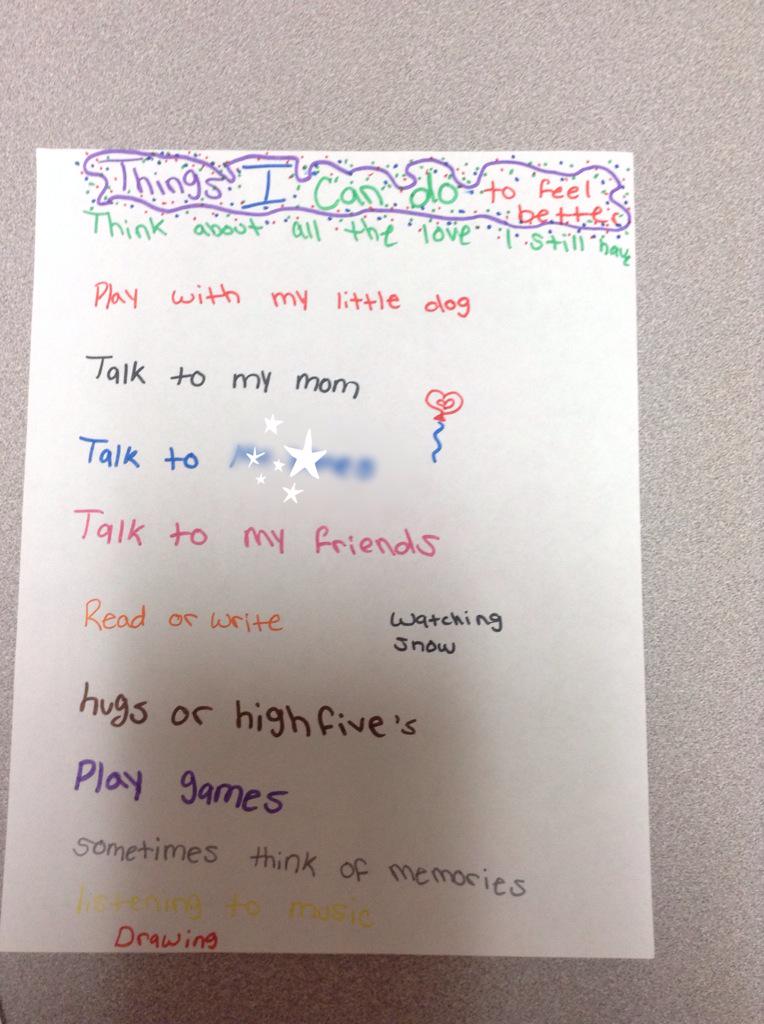 Things I Can do to feel
better
Think about all the love I still have
Play with my little dog
Talk to my mom
Talk to
Talk to my friends
Read or write
Watching
Snow
hugs or highfive's
Play games
sometimes think of memories
listening to music
Drawing